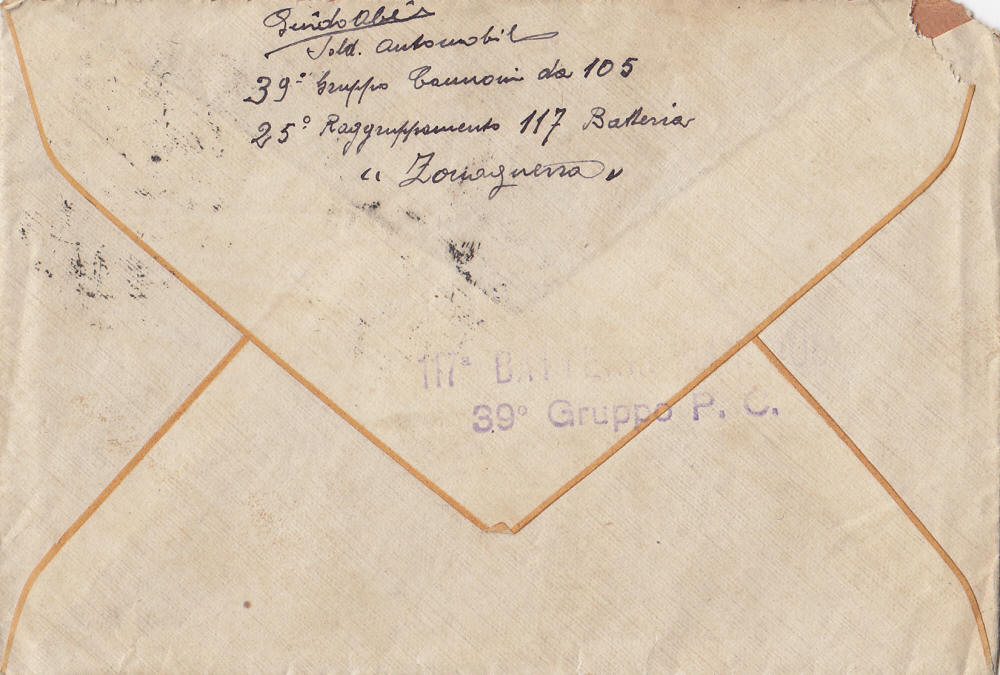 Guido
Sold. Automobil
39° Gruppo Cannoni da 105
25° Raggruppamento 117 Batteria
“ Zonaguerra ”
117ª BATTERIA
39° Gruppo P. C.